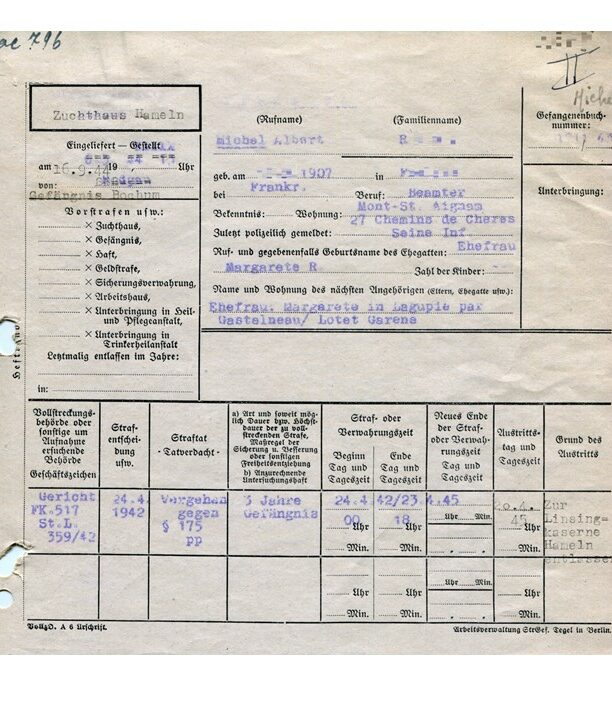 796
II
Zuchthaus Hameln
(Rufname) (Familienname)
Gefangenenbuch-
nummer:
Michel Albert R
Eingeliefert — Gestellt
am 16.9.44 19 Uhr
von:
Gefängnis Bochum
geb. am 1907 in
bei Frankr. Beruf: Beamter
Unterbringung:
Vorstrafen usw.:
Bekenntnis: Wohnung: Mont-St. Aignam
27 Chemins de Cheres
Zuletzt polizeilich gemeldet: Seine Inf.
× Zuchthaus,
× Gefängnis,
× Haft,
× Geldstrafe,
× Sicherungsverwahrung,
× Arbeitshaus,
× Unterbringung in Heil-
und Pflegeanstalt,
× Unterbringung in
Trinkerheilanstalt
Letztmalig entlassen im Jahre:
in:
Ruf- und gegebenenfalls Geburtsname des Ehegatten: Ehefrau
Margarete R Zahl der Kinder: --
Name und Wohnung des nächsten Angehörigen (Eltern, Ehegatte usw.):
Ehefrau. Margarete in Lagupie par
Gastelneau/ Lotet Garena
Heftrand
Vollstreckungs-
behörde oder
sonstige um
Aufnahme
ersuchende
Behörde
Geschäftszeichen
Straf-
entschei-
dung
usw.
Straftat
- Tatverdacht-
a) Art und soweit mög-
lich Dauer bzw. Höchst-
dauer der zu voll-
streckenden Strafe,
Maßregel der
Sicherung u. Besserung
oder sonstigen
Freiheitsentziehung
b) Anzurechnende
Untersuchungshaft
Straf- oder
Verwahrungszeit
Beginn
Tag und
Tageszeit
Ende
Tag und
Tageszeit
Neues Ende
der Straf-
oder Verwah-
rungszeit
Tag und
Tageszeit
Austritts-
tag und
Tageszeit
Grund des
Austritts
Gericht
FK.517
St.L.
359/42
24.4.
1942
Vergehen
gegen
§ 175
pp
3 Jahre
Gefängnis
24.4.42/23.4.45
00 Uhr
Min.
18 Uhr
Min.
Uhr Min.
4.
45 Uhr
Min.
Zur
Linsing-
kaserne
Hameln
entlassen
Uhr
Min.
Uhr
Min.
Uhr Min.
Uhr
Min.
VollzO. A 6 Urschrift.
Arbeitsverwaltung StrGef. Tegel in Berlin.